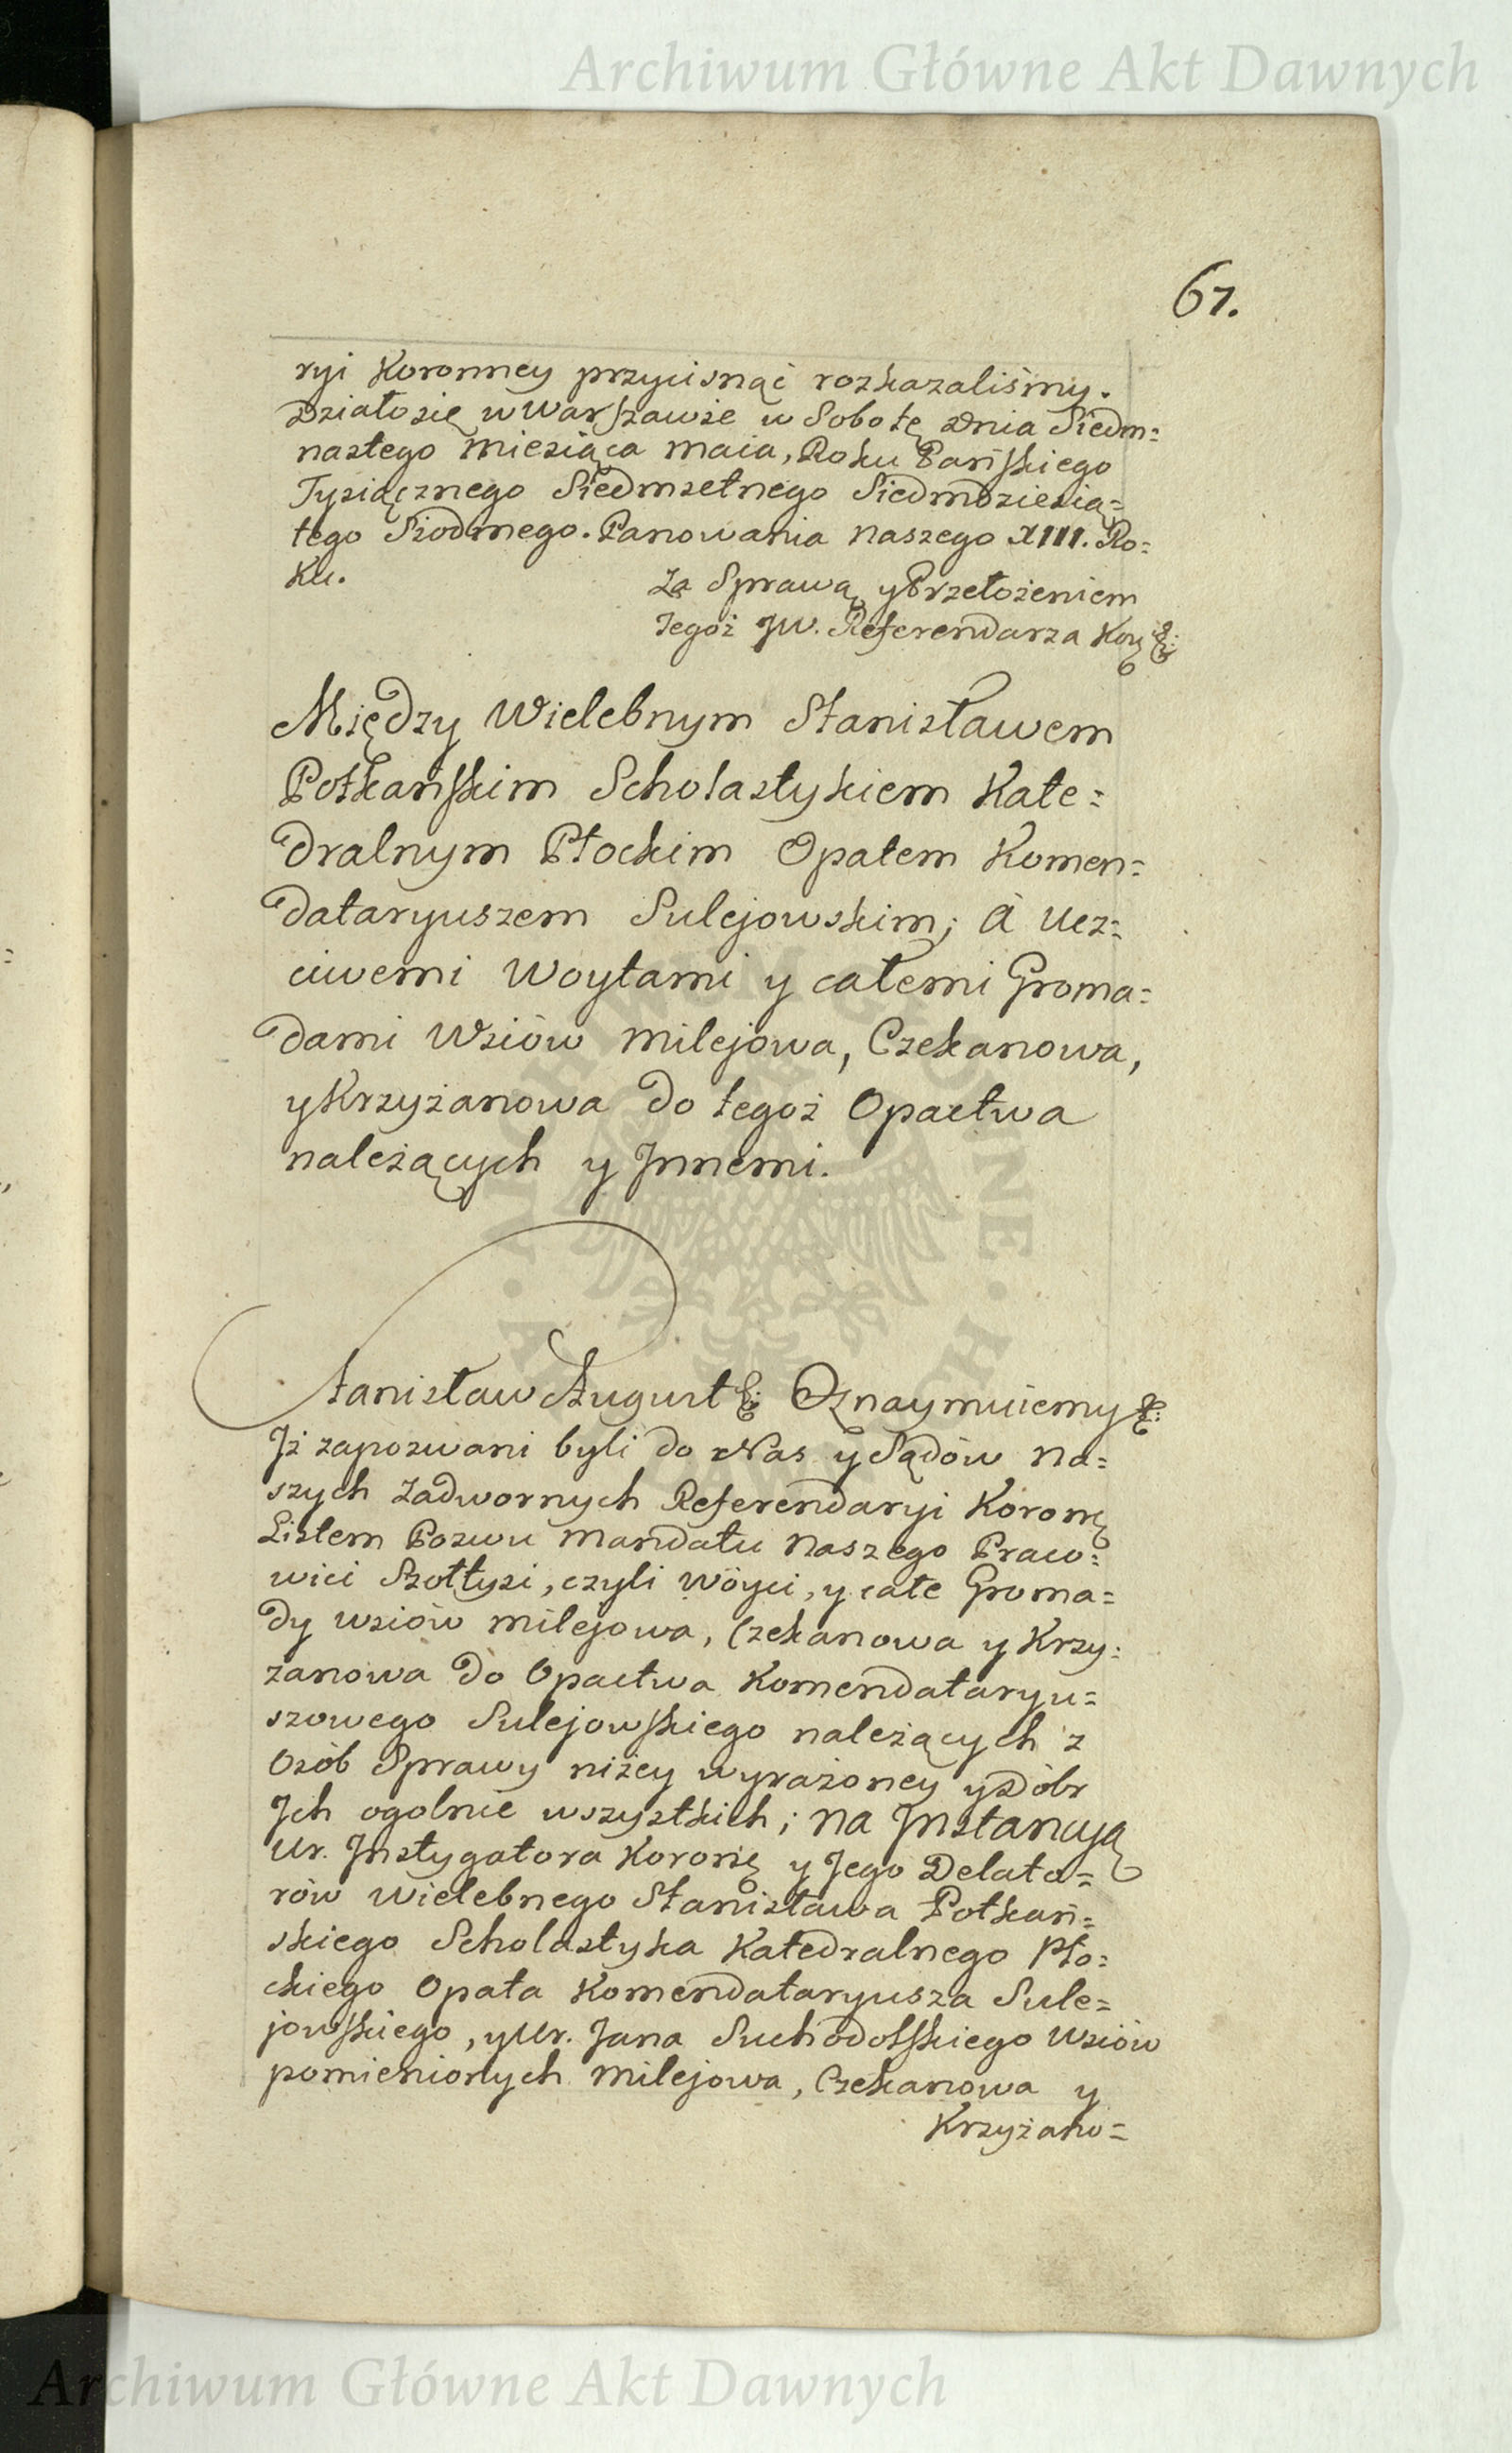 Archiwum Główne Akt Dawnych
67.
ryi Koronney przycisnąć rozkazaliśmy.
Działo się w Warszawie w Sobotę Dnia Siedm=
nastego Miesiąca Maia, Roku Pańskiego
Tysiącznego Siedmsetnego Siedmdziesią=
tego Siodmego. Panowania Naszego XIII. Ro=
ku.
Za Sprawą y Przełożeniem
Tegoż JW. Referendarza Kor: &:
Między Wielebnym Stanisławem
Potkańskim Scholastykiem Kate=
dralnym Płockim Opatem Komen=
dataryuszem Sulejowskim; á Ucz=
ciwemi Woytami y całemi Groma=
dami Wsiów Milejowa, Czekanowa,
y Krzyżanowa do tegoż Opactwa
należących y Innemi.
Stanisław August &: Oznaymuiemy &:
Iż zapozwani byli do Nas y Sądów Na=
szych Zadwornych Referendaryi Koronę
Listem Pozwu Mandatu Naszego Praco=
wici Szołtysi, czyli Wóyci, y całe Groma=
dy wsiów Milejowa, Czekanowa y Krzy=
żanowa do Opactwa Komendataryu=
szowego Sulejowskiego należących z
Osób Sprawy niżey wyrażoney y Dóbr
Ich ogolnie wszystkich; na Instancyą
Ur. Instygatora Koronę y Jego Delato=
rów Wielebnego Stanisława Potkań=
skiego Scholastyka Katedralnego Pło=
ckiego Opata Komendataryusza Sule=
jowskiego, y Ur. Jana Suchodolskiego Wsiów
pomienionych Milejowa, Czekanowa y
Krzyżano=
Archiwum Główne Akt Dawnych